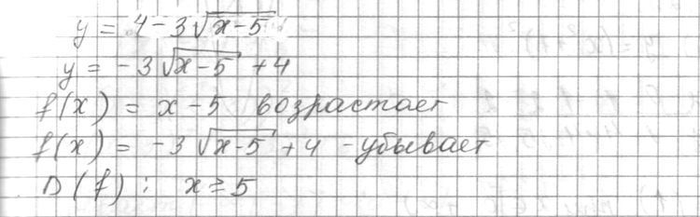 y = 4 - 3√(x-5)
y = -3√(x-5) + 4
f(x) = x - 5 возрастает
f(x) = -3√(x-5) + 4 - убывает
D(f): x ≥ 5